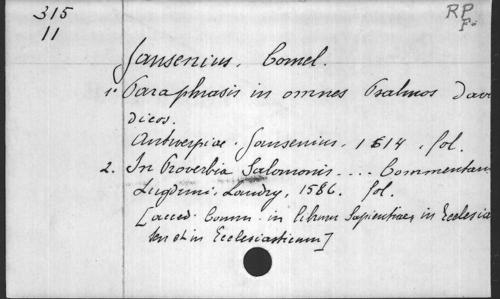 315
11
RP
F.
Jansenius. Cornel.
1. Paraphrasis in omnes Psalmos Davi
dicos.
Antwerpiae. Jansenius. 1614. fol.
2. In Proverbia Salomonis ... Commentari
Lugduni. Landry, 1586. fol.
[acced. Comm. in librum Sapientiae, in Ecclesias
ten et in Ecclesiasticum]